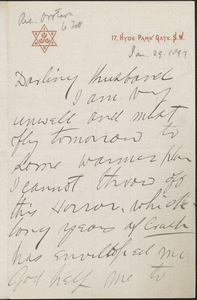 17, HYDE PARK GATE. S.W.
Jan. 29. 1897
Darling Husband
I am very
unwell and must
fly tomorrow to
some warmer place
I cannot throw off
this Horror, which
long years of
has enveloped me
God help me to